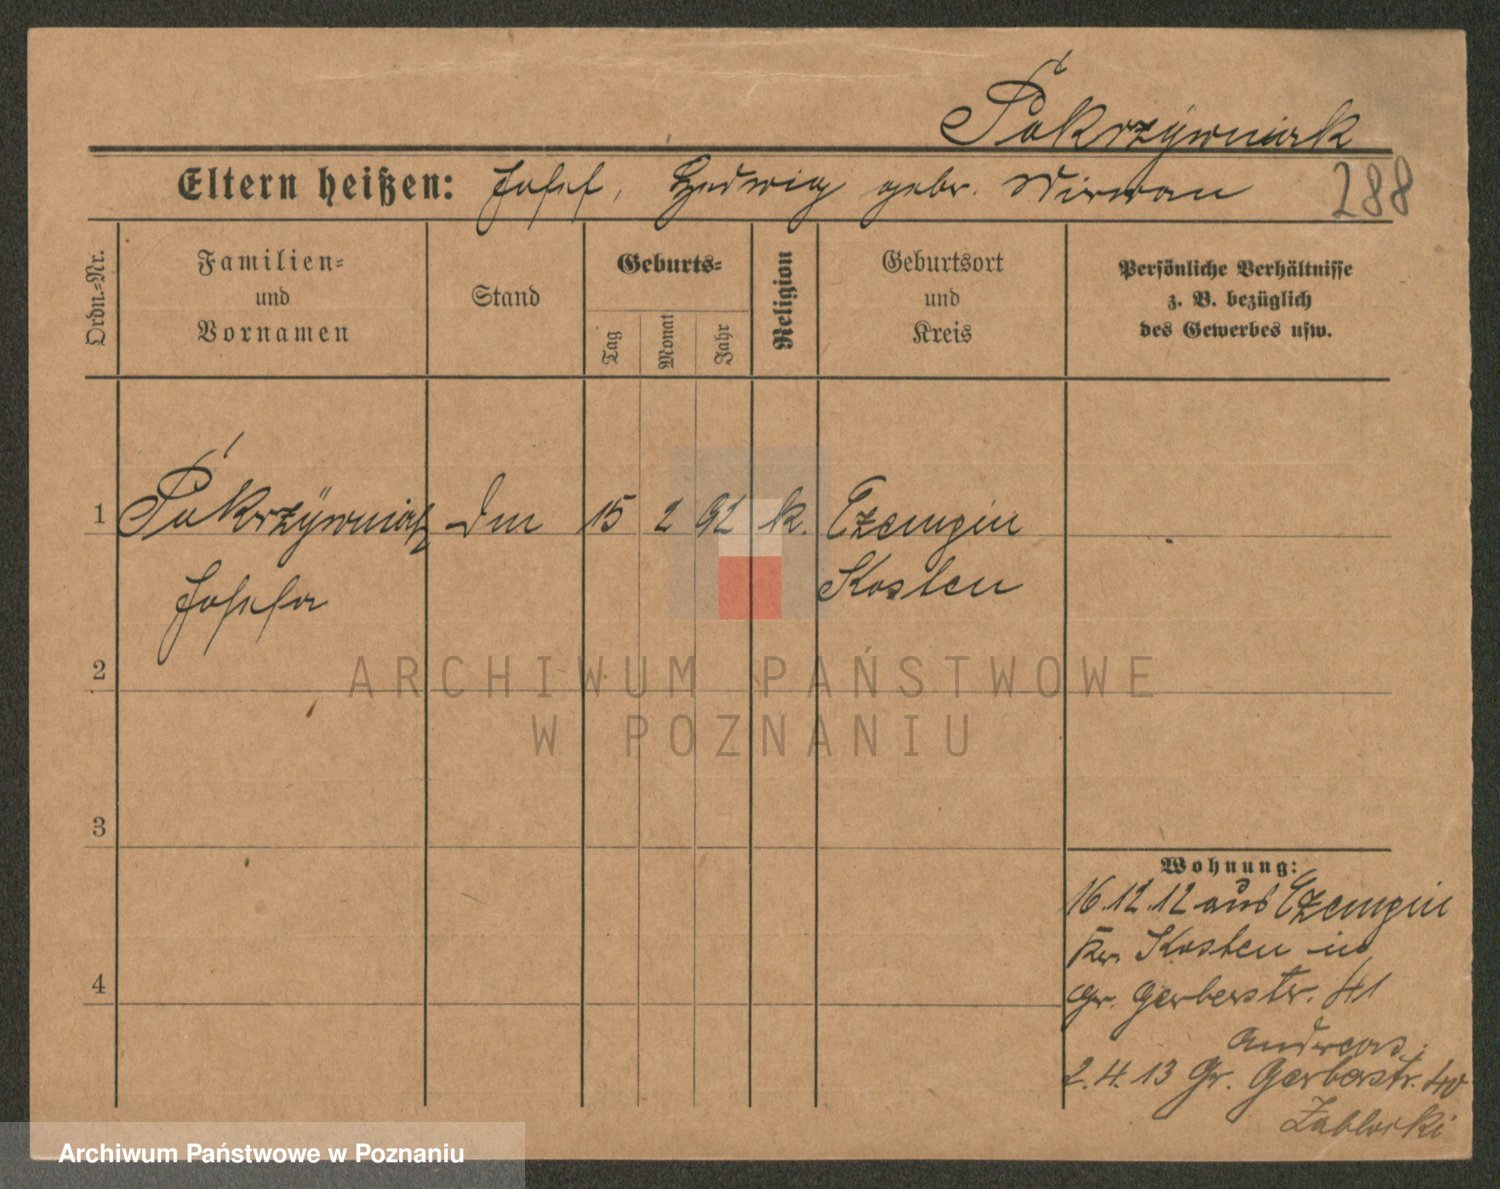 Pokrzywniak
Eltern heißen: Josef, Hedwig gebr. Wirwan
288
Ordn.-Nr.
Familien-
und
Vornamen
Stand
Geburts-
Tag
Monat
Jahr
Religion
Geburtsort
und
Kreis
Persönliche Verhältnisse
z. B. bezüglich
des Gewerbes usw.
1 Pokrzywniak 15 2 92 k. Czempin
Josefa Kosten
2
ARCHIWUM PAŃSTWOWE
W POZNANIU
3
Wohnung:
16.12.12 aus Czempin
Kr. Kosten in
4
Gr. Gerberstr. 41
Andreas
2.4.13 Gr. Gerberstr. 40
Zabloski
Archiwum Państwowe w Poznaniu